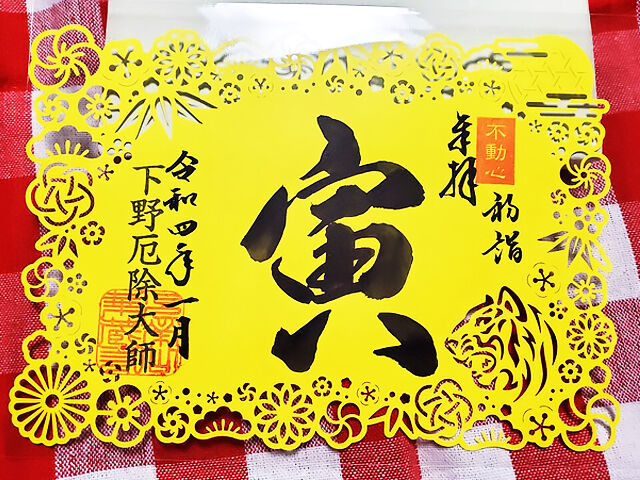 不動心
奉拝
初詣
寅
令和四年一月
下野厄除大師